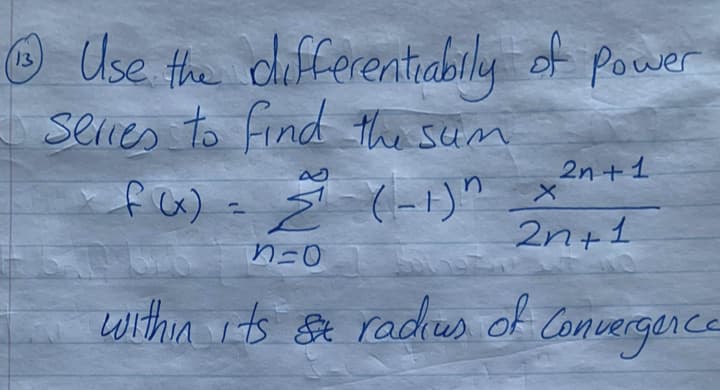 (13) Use the differentiabily of power
series to find the sum
f(x) = ∑_{n=0}^{∞} (-1)^n x^{2n+1} / (2n+1)
within its radius of convergence